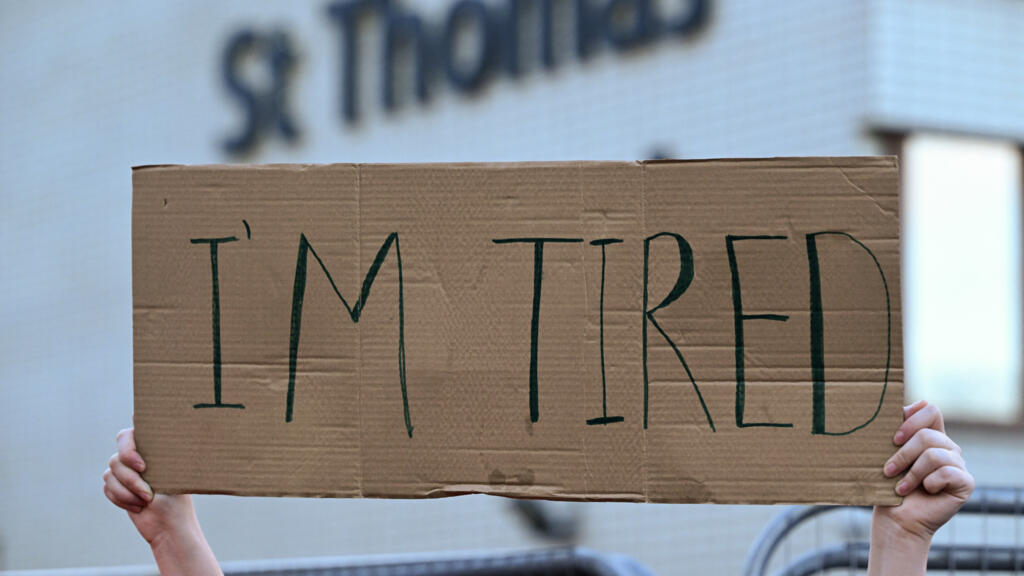 St Thomas
I'M TIRED